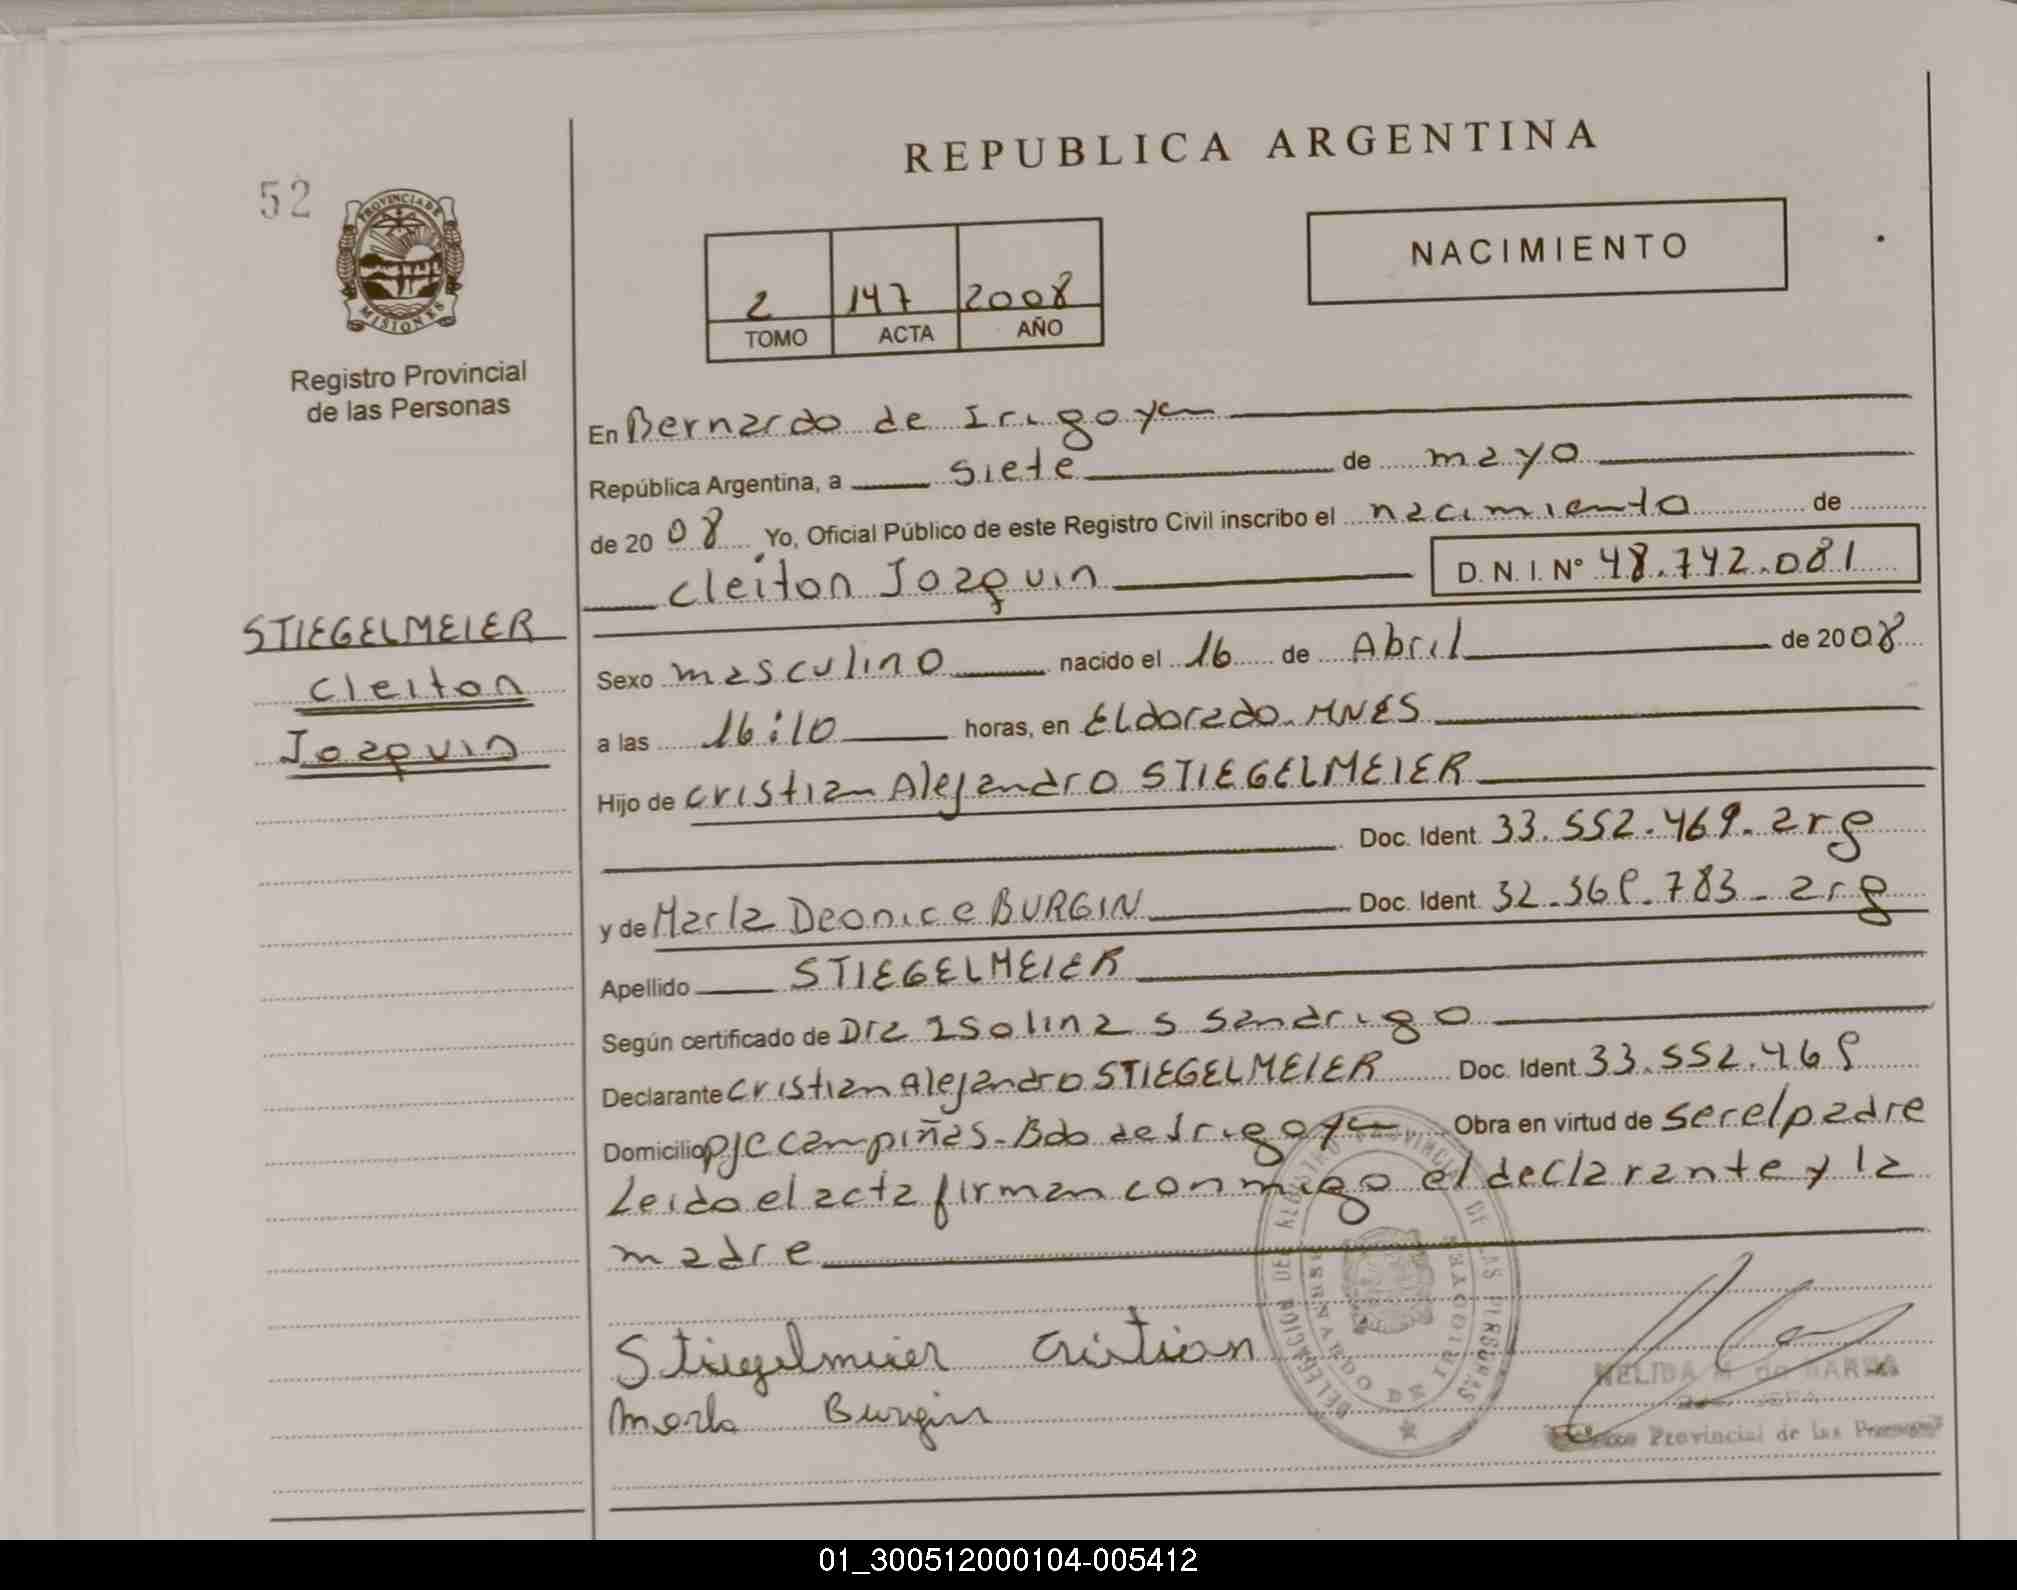 REPUBLICA ARGENTINA
52
PROVINCIA DE
MISIONES
Registro Provincial
de las Personas
NACIMIENTO
2 147 2008
TOMO ACTA AÑO
En Bernardo de Irigoyen
República Argentina, a siete de mayo
de 2008 Yo, Oficial Público de este Registro Civil inscribo el nacimiento de
Cleiton Joaquin D. N. I. N° 48.742.081
STIEGELMEIER
Cleiton
Joaquin
Sexo masculino nacido el 16 de Abril de 2008
a las 16:10 horas, en Eldorado. MNES
Hijo de Cristian Alejandro STIEGELMEIER
Doc. Ident. 33.552.469. arg
y de Marla Deonice BURGIN Doc. Ident. 32.369.783 - arg
Apellido STIEGELMEIER
Según certificado de Dra Isolina S Sandrigo
Declarante Cristian Alejandro STIEGELMEIER Doc. Ident. 33.552.469
Domicilio pje campiñas - Bdo de Irigoyen Obra en virtud de ser el padre
Leido el acta firman conmigo el declarante y la
madre
Stiegelmeier Cristian
Marla Burgin
DELEGACION DEL REGISTRO PROVINCIAL DE LAS PERSONAS
BERNARDO DE IRIGOYEN
NELIDA M. de
Provincial de las Personas
01_300512000104-005412